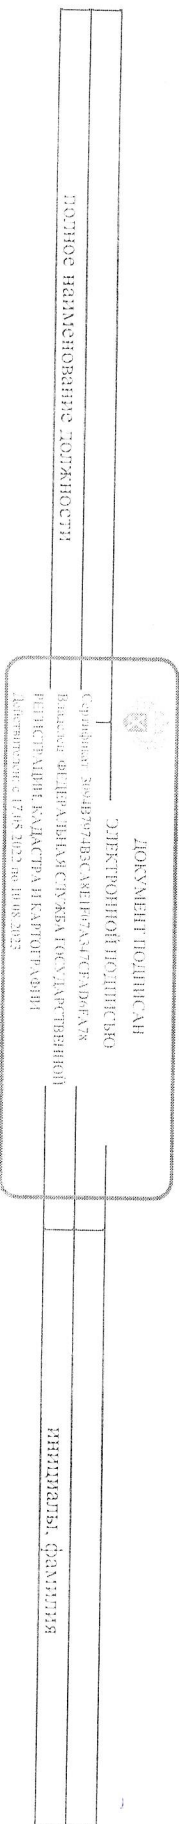 полное наименование должности
ДОКУМЕНТ ПОДПИСАН
ЭЛЕКТРОННОЙ ПОДПИСЬЮ
Сертификат:
Владелец: ФЕДЕРАЛЬНАЯ СЛУЖБА ГОСУДАРСТВЕННОЙ
РЕГИСТРАЦИИ, КАДАСТРА И КАРТОГРАФИИ
Действителен: с 17.05.2022 по 10.08.2023
инициалы, фамилия